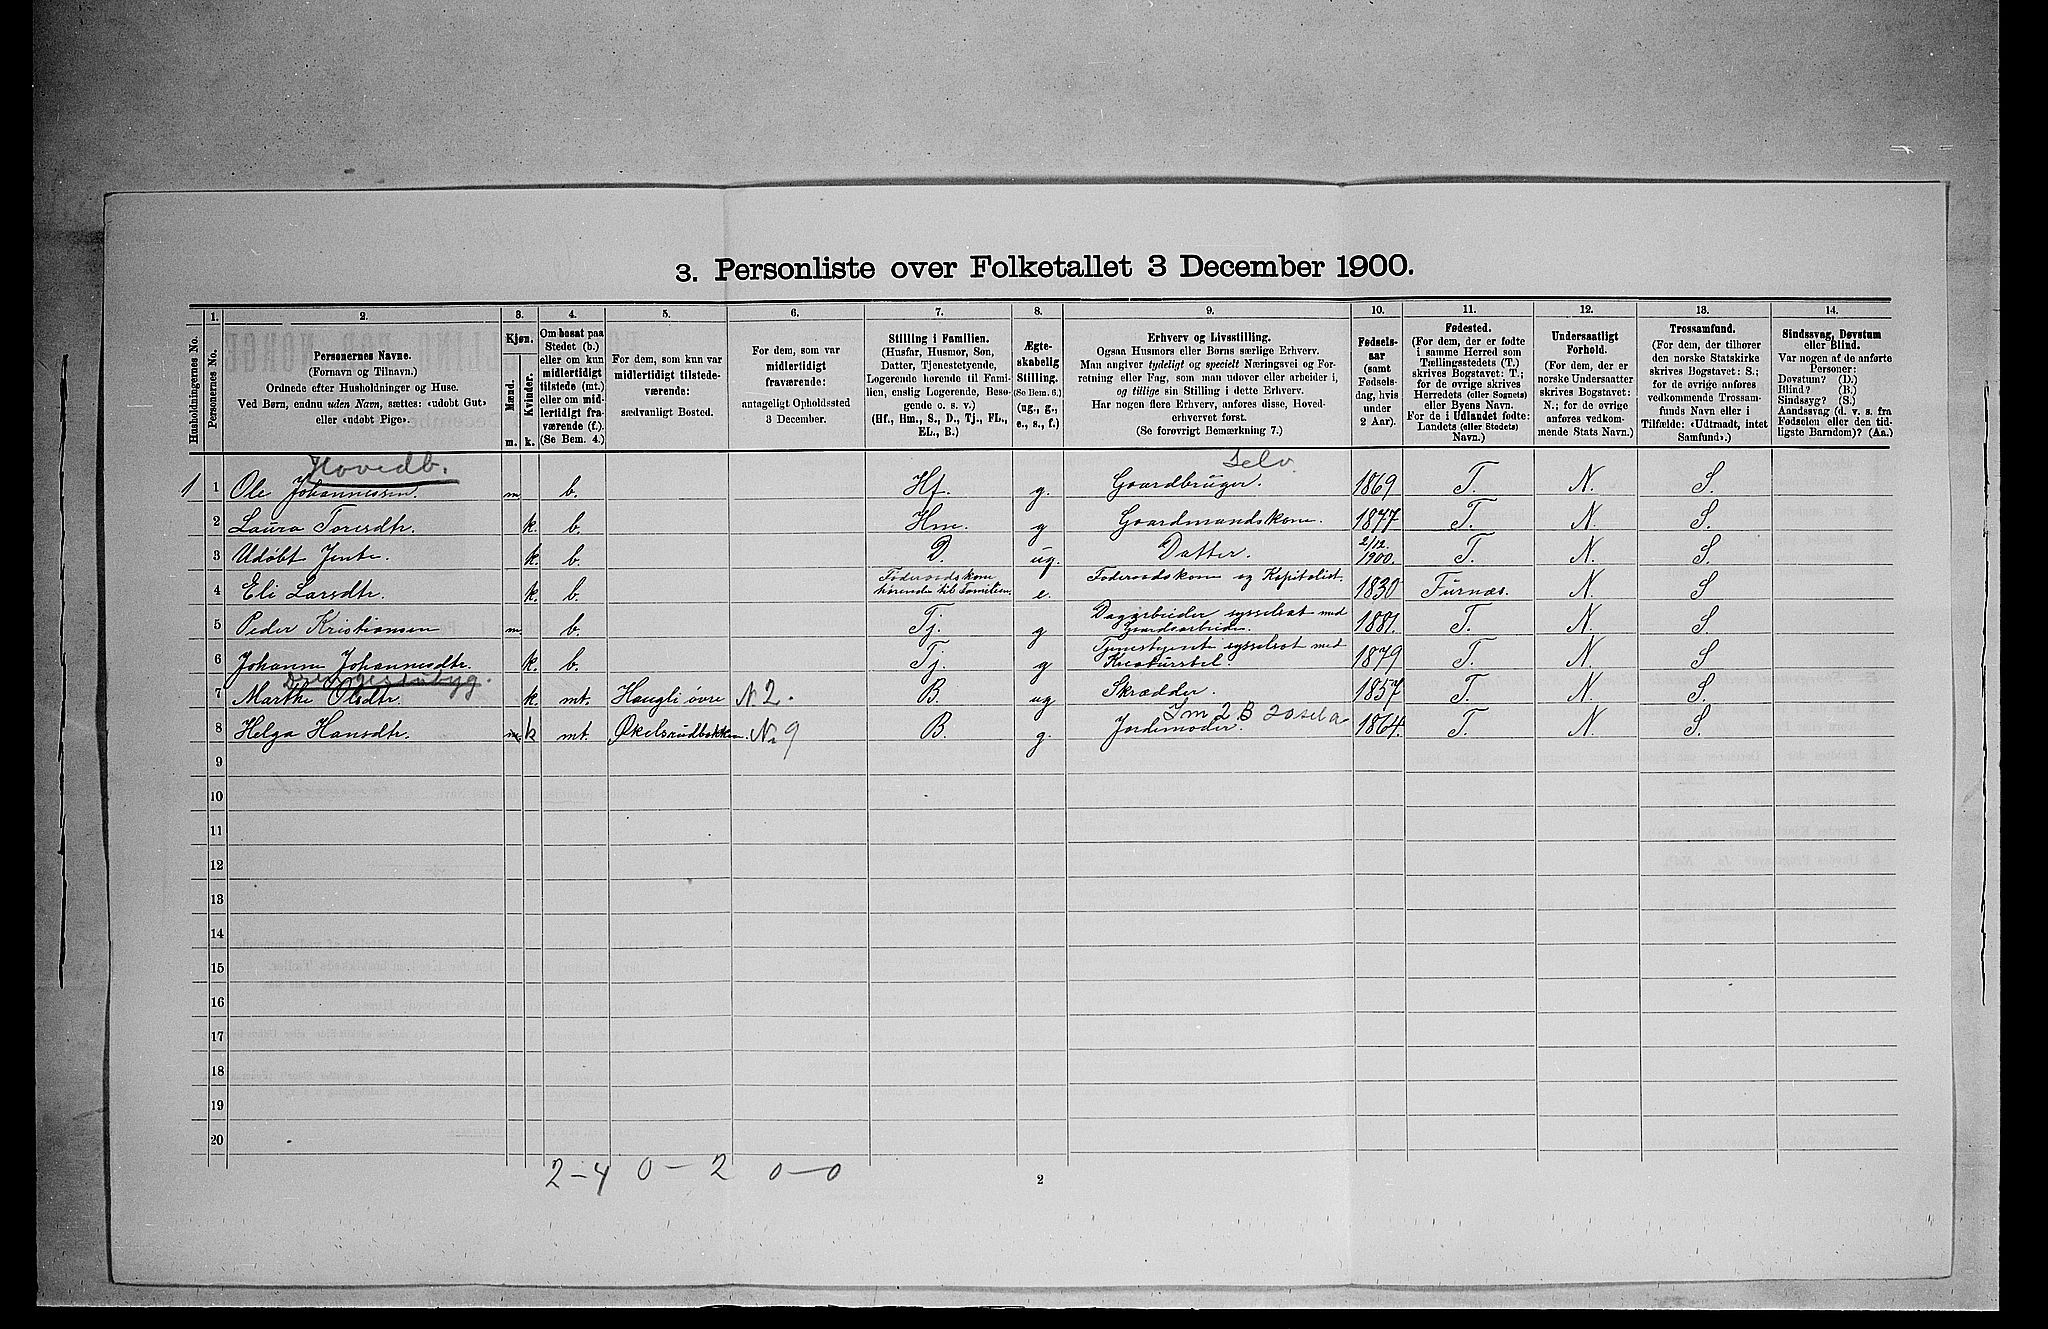 3. Personliste over Folketallet 3 December 1900.
Husholdningernes No.
1.
Personernes No.
2.
Personernes Navne.
(Fornavn og Tilnavn.)
Ordnede efter Husholdninger og Huse.
Ved Børn, endnu uden Navn, sættes: «udøbt Gut»
eller «udøbt Pige».
3.
Kjøn.
Mænd.
Kvinder.
m. k.
4.
Om bosat paa
Stedet (b.)
eller om kun
midlertidigt
tilstede (mt.)
eller om mid-
lertidigt fra-
værende (f.)
(Se Bem. 4.)
5.
For dem, som kun var
midlertidigt tilstede-
værende:
sædvanligt Bosted.
6.
For dem, som var
midlertidigt
fraværende:
antageligt Opholdssted
3 December.
7.
Stilling i Familien.
(Husfar, Husmor, Søn,
Datter, Tjenestetyende,
Logerende hørende til Fami-
lien, enslig Logerende, Besø-
gende o. s. v.)
(Hf., Hm., S., D., Tj., FL.,
EL., B.)
8.
Ægte-
skabelig
Stilling.
(Se Bem. 6.)
(ug., g.,
e., s., f.)
9.
Erhverv og Livsstilling.
Ogsaa Husmors eller Børns særlige Erhverv.
Man angiver tydeligt og specielt Næringsvei og For-
retning eller Fag, som man udøver eller arbeider i,
og tillige sin Stilling i dette Erhverv.
Har nogen flere Erhverv, anføres disse, Hoved-
erhvervet først.
(Se forøvrigt Bemærkning 7.)
10.
Fødsels-
aar
(samt
Fødsels-
dag, hvis
under
2 Aar).
11.
Fødested.
(For dem, der er fødte
i samme Herred som
Tællingsstedets (T.)
skrives Bogstavet: T.;
for de øvrige skrives
Herredets (eller Sognets)
eller Byens Navn.
For de i Udlandet fødte:
Landets (eller Stedets)
Navn.)
12.
Undersaatligt
Forhold.
(For dem, der er
norske Undersaatter
skrives Bogstavet:
N.; for de øvrige
anføres vedkom-
mende Stats Navn.)
13.
Trossamfund.
(For dem, der tilhører
den norske Statskirke
skrives Bogstavet: S.;
for de øvrige anføres
vedkommende Trossam-
funds Navn eller i
Tilfælde: «Udtraadt, intet
Samfund».)
14.
Sindssvag, Døvstum
eller Blind.
Var nogen af de anførte
Personer:
Døvstum? (D.)
Blind? (B.)
Sindssyg? (S.)
Aandssvag (d. v. s. fra
Fødselen eller den tid-
ligste Barndom)? (Aa.)
Hovedb. Selv.
1 1 Ole Johannessen. m b. Hf. g. Gaardbruger. 1869 T. N. S.
2 Laura Toresdtr. k. b. Hm. g Gaardmandskone. 1877 T. N. S.
3 Udøbt Jente. k. b. D. ug. Datter. 2/12. 1900. T. N. S.
4 Eli Larsdtr. k. b. Føderaadskone hørende til Familien. e. Føderaadskone og Kapitalist. 1830 Furnæs. N. S
5 Peder Kristiansen m. b. Tj. g Dagarbeider sysselsat med Gaardsarbeide. 1881. T. N. S
6 Johanne Johannesdtr. k. b. Tj. g Tjenestejente sysselsat med Kreaturstel. 1879 T. N. S
Drengestubyg.
7 Marthe Olsdtr. k. mt. Haugli øvre N. 2. B. ug Skrædder. 1857 T. N. S
8 Helga Hansdtr. m. k mt. Økelsrudbakken. N. 9 B. g. Jordemoder. 1864. T. N. S.
9
10
11
12
13
14
15
16
17
18
19
20
2-4 0-2 0-0
2